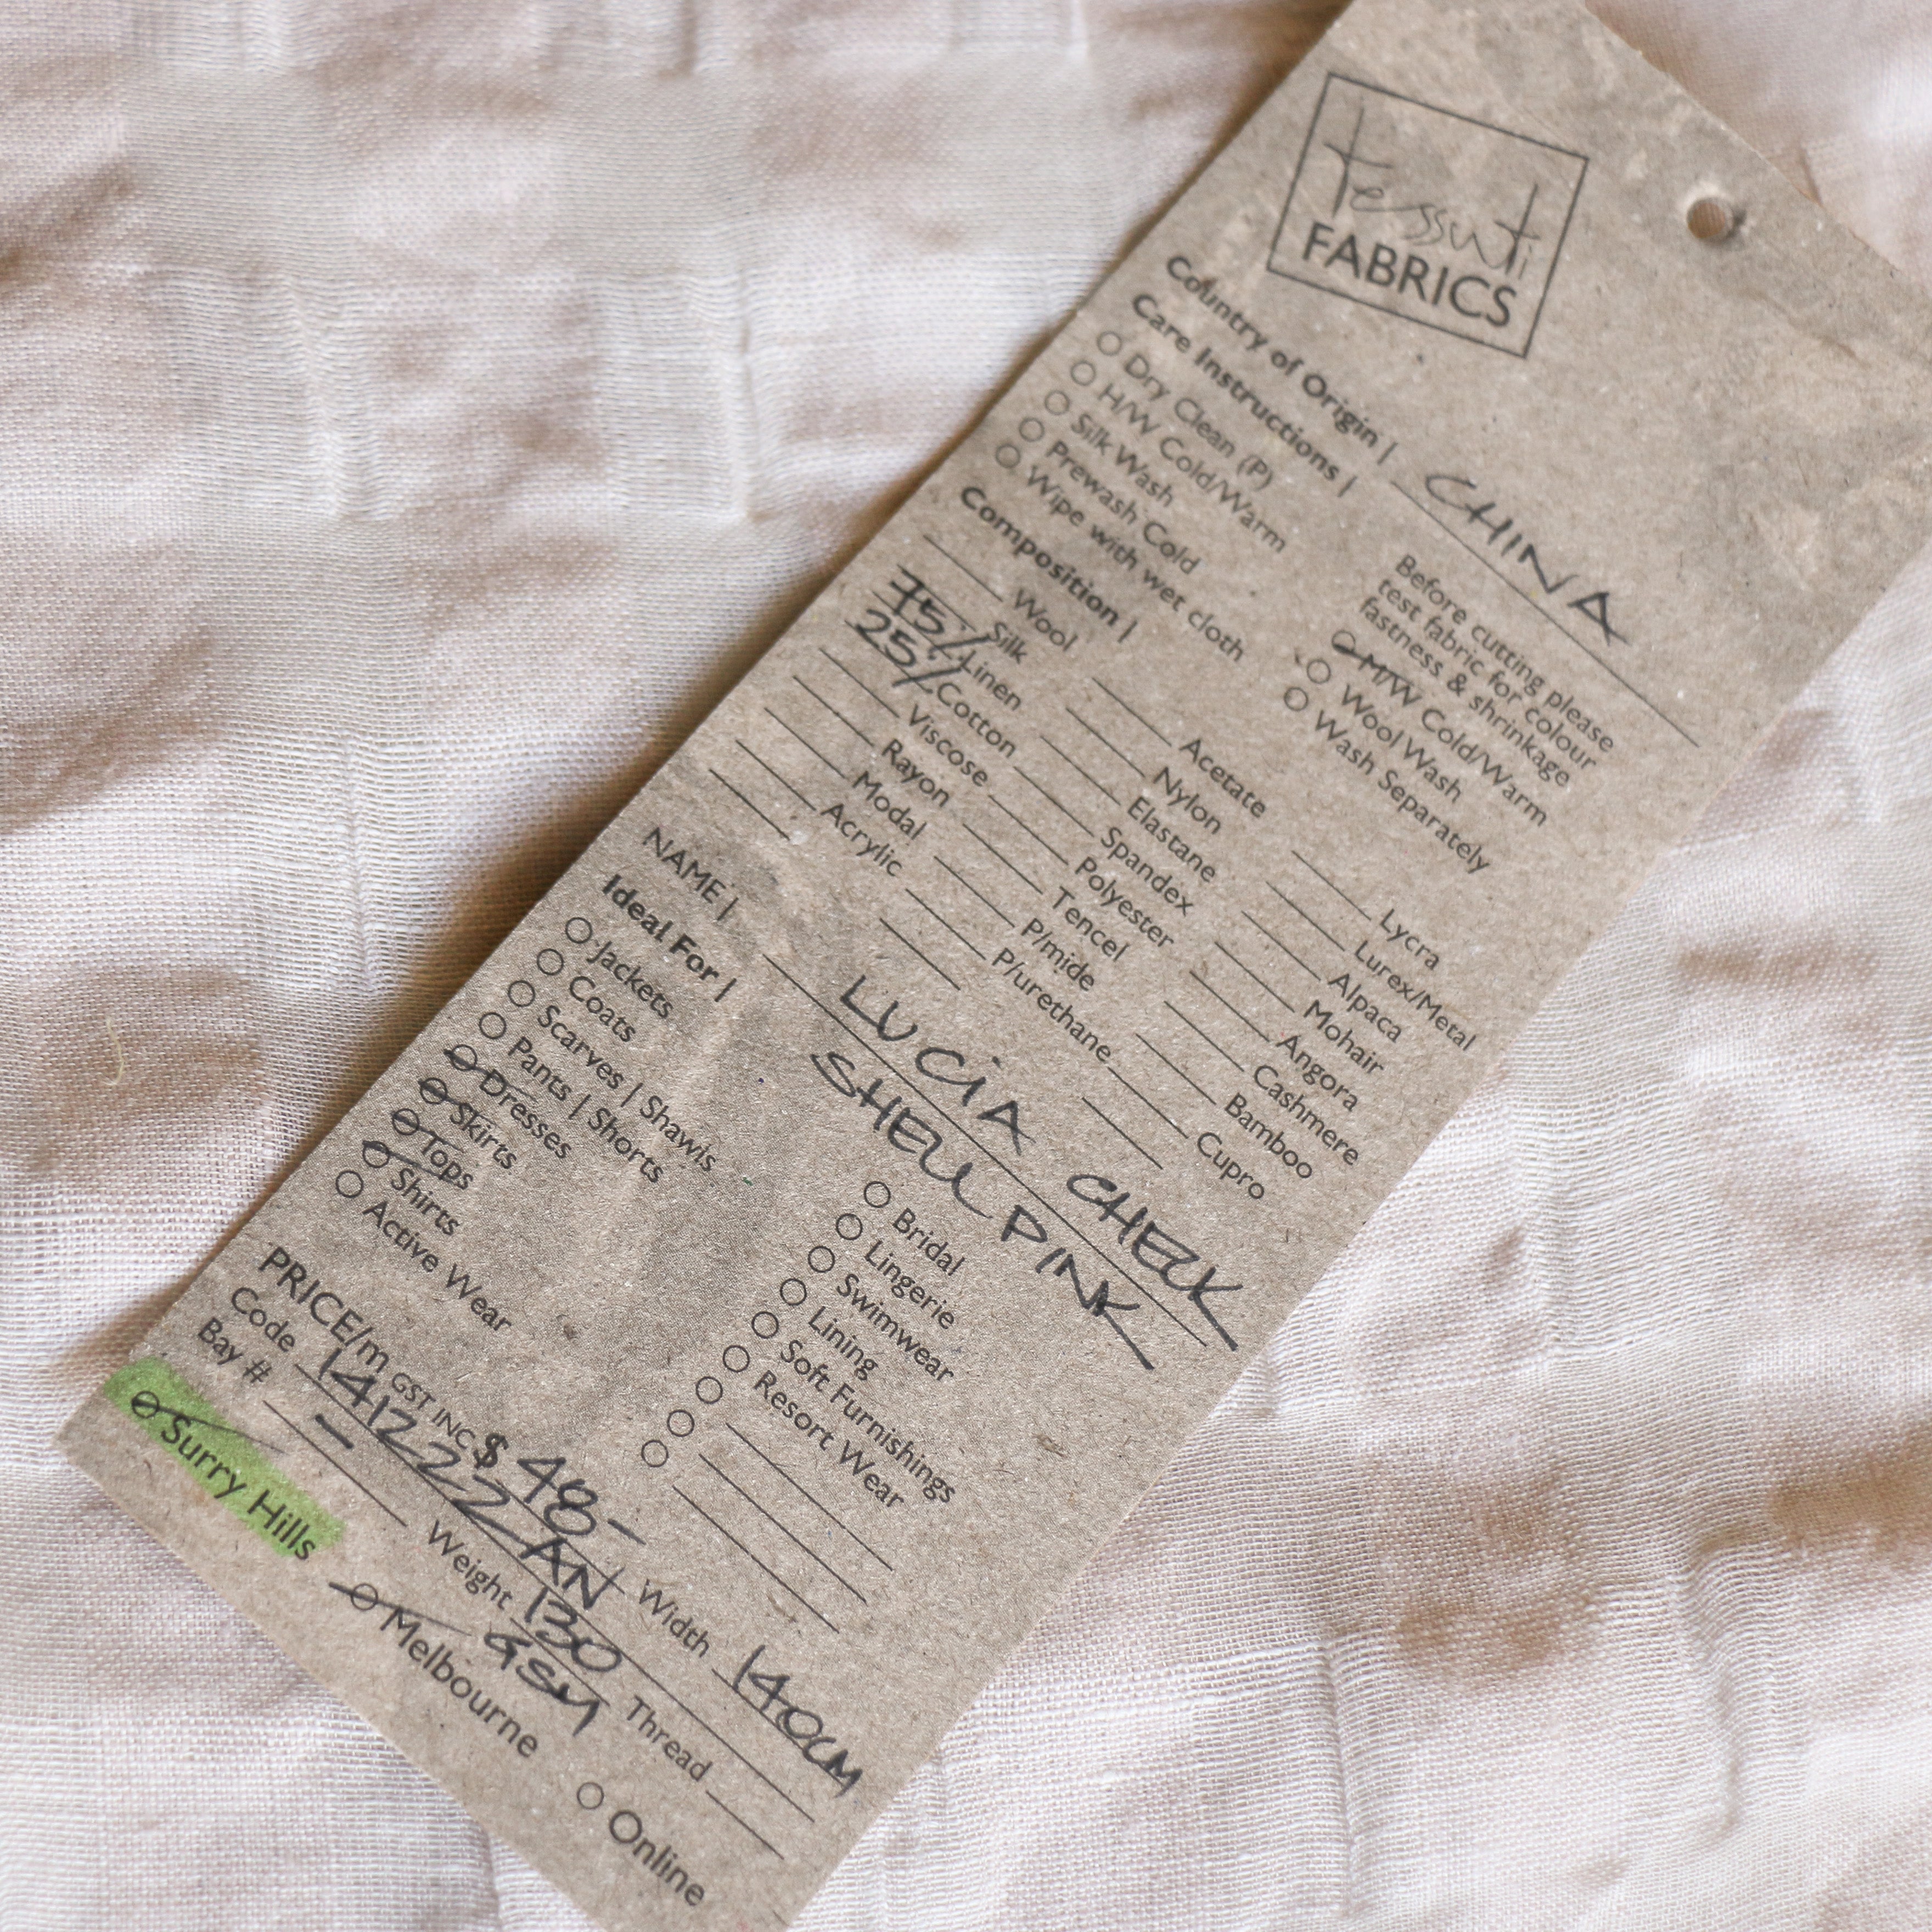 tessuti
FABRICS
Country of Origin | CHINA
Care Instructions |
Dry Clean (P)
H/W Cold/Warm
Silk Wash
Prewash Cold
Wipe with wet cloth
Before cutting please
test fabric for colour
fastness & shrinkage
M/W Cold/Warm
Wool Wash
Wash Separately
Composition |
Wool
Silk
75% Linen
25% Cotton
Viscose
Rayon
Modal
Acrylic
Acetate
Nylon
Elastane
Spandex
Polyester
Tencel
P/mide
P/urethane
Lycra
Lurex/Metal
Alpaca
Mohair
Angora
Cashmere
Bamboo
Cupro
NAME | LUCIA CHECK
SHELL PINK
Ideal For |
Jackets
Coats
Scarves | Shawls
Pants | Shorts
Dresses
Skirts
Tops
Shirts
Active Wear
Bridal
Lingerie
Swimwear
Lining
Soft Furnishings
Resort Wear
PRICE/m GST INC $48-
Code 141222-AN Width 140CM
Bay # - Weight 130 GSM Thread
Surry Hills Melbourne Online